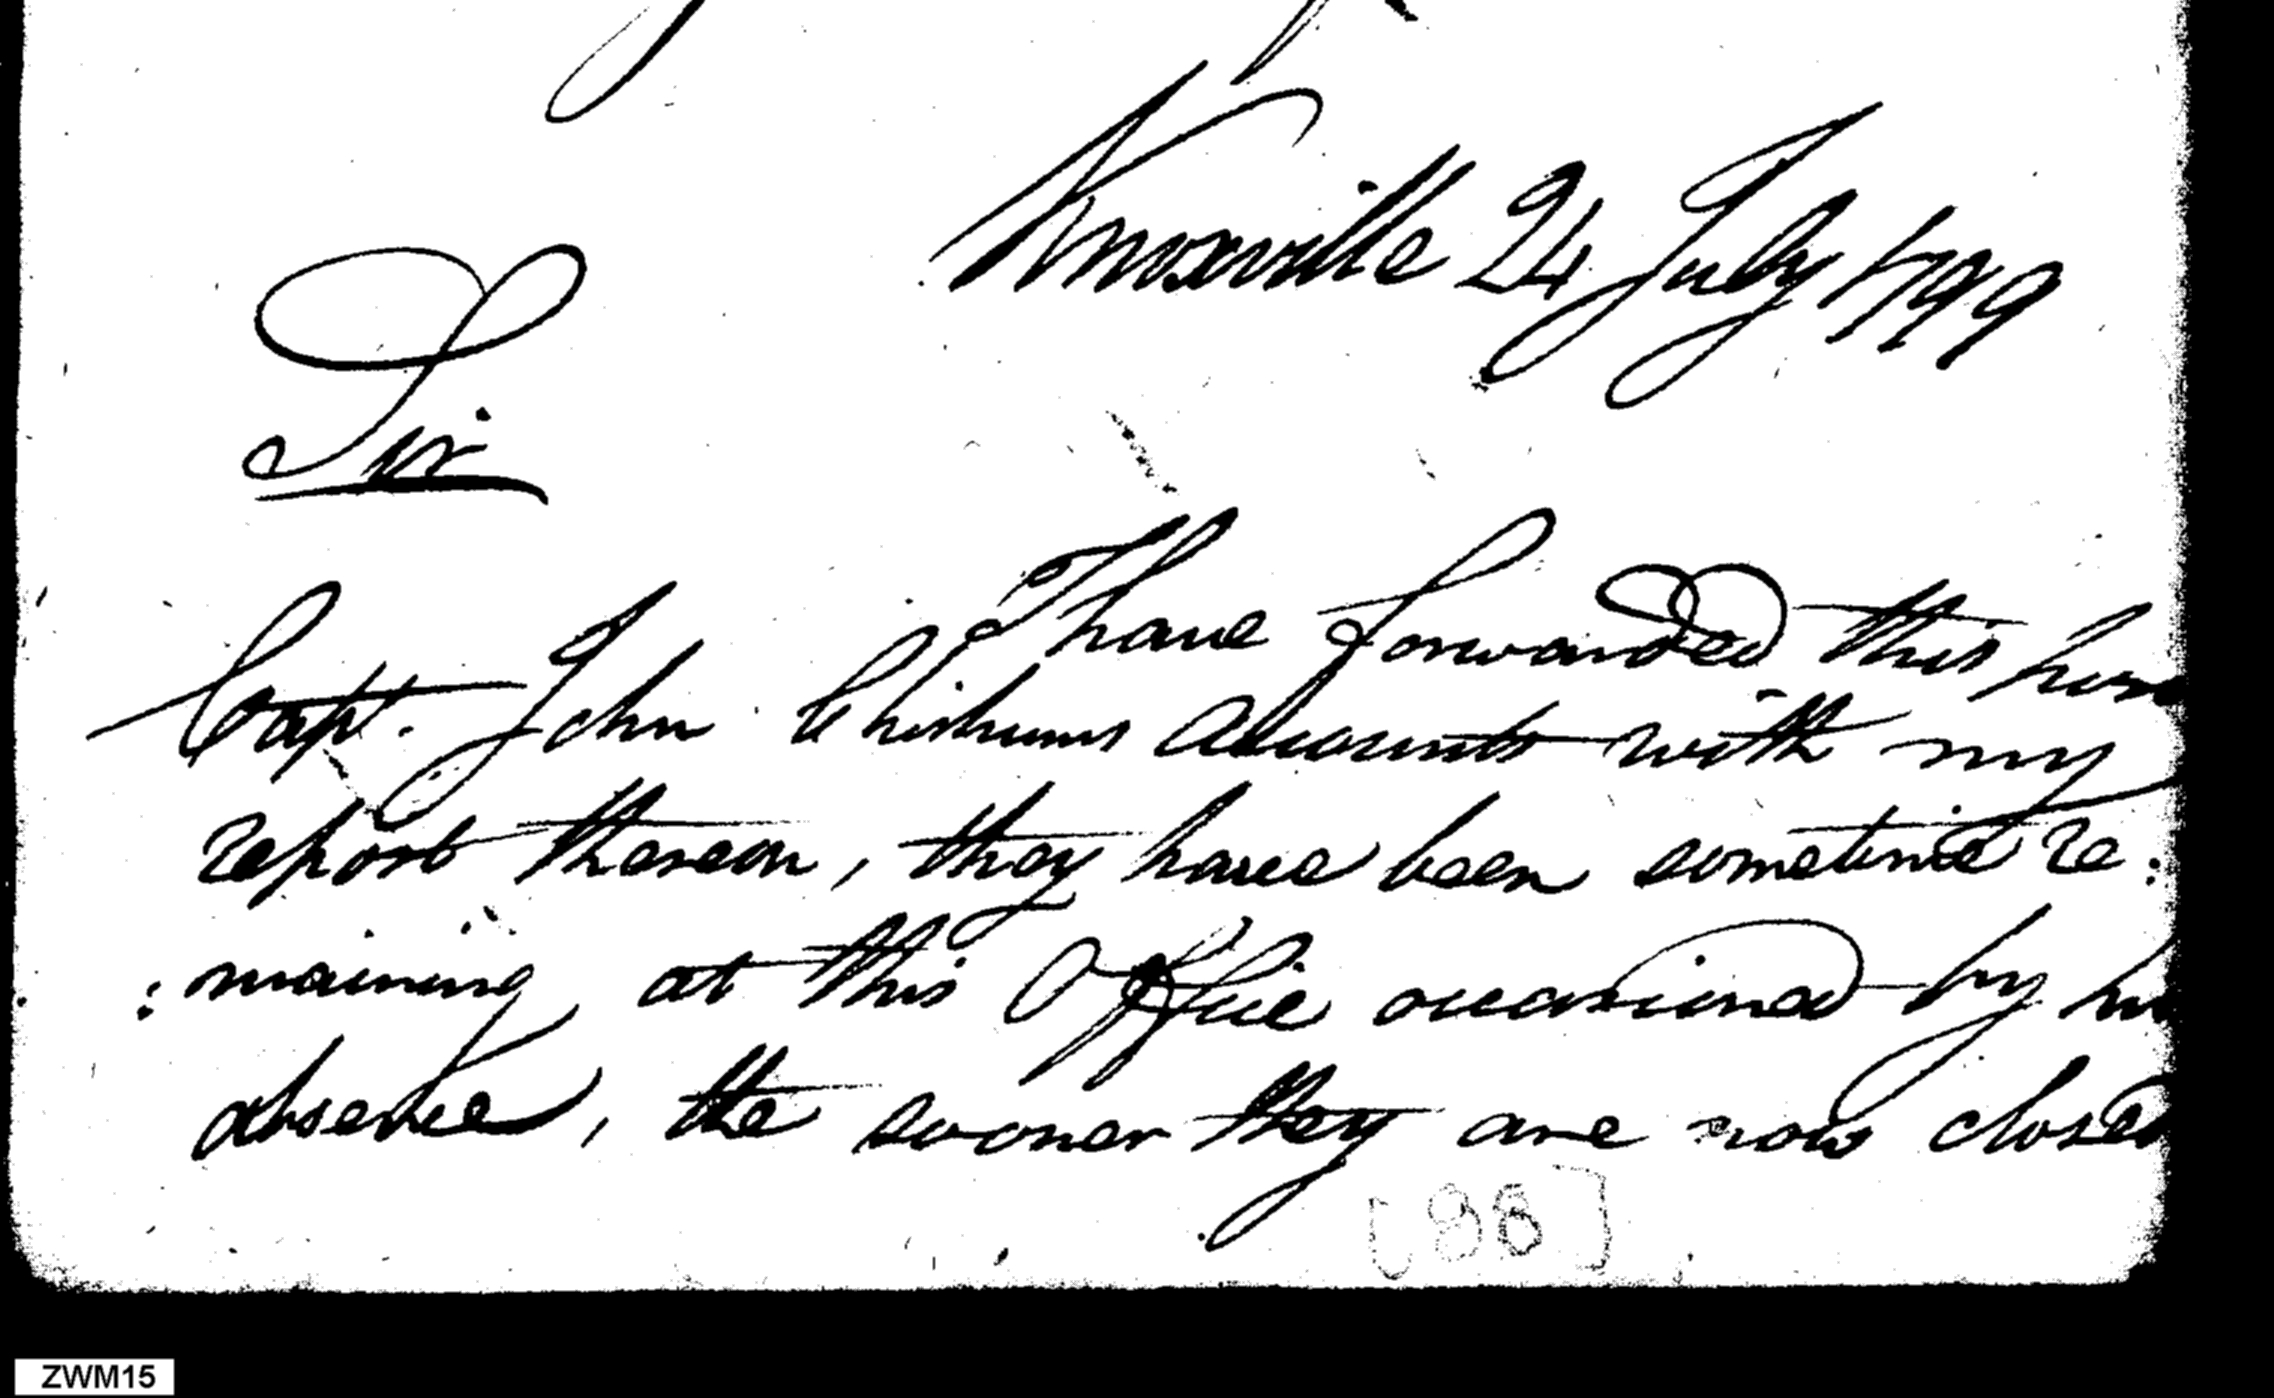 Knoxville 24 July 1799
Sir
I have forwarded this
Capt. John Chishums Accounts with my
report thereon, they have been sometime re:
:maining at this Office occasioned by
absence, the sooner they are now closed
[86]
ZWM15